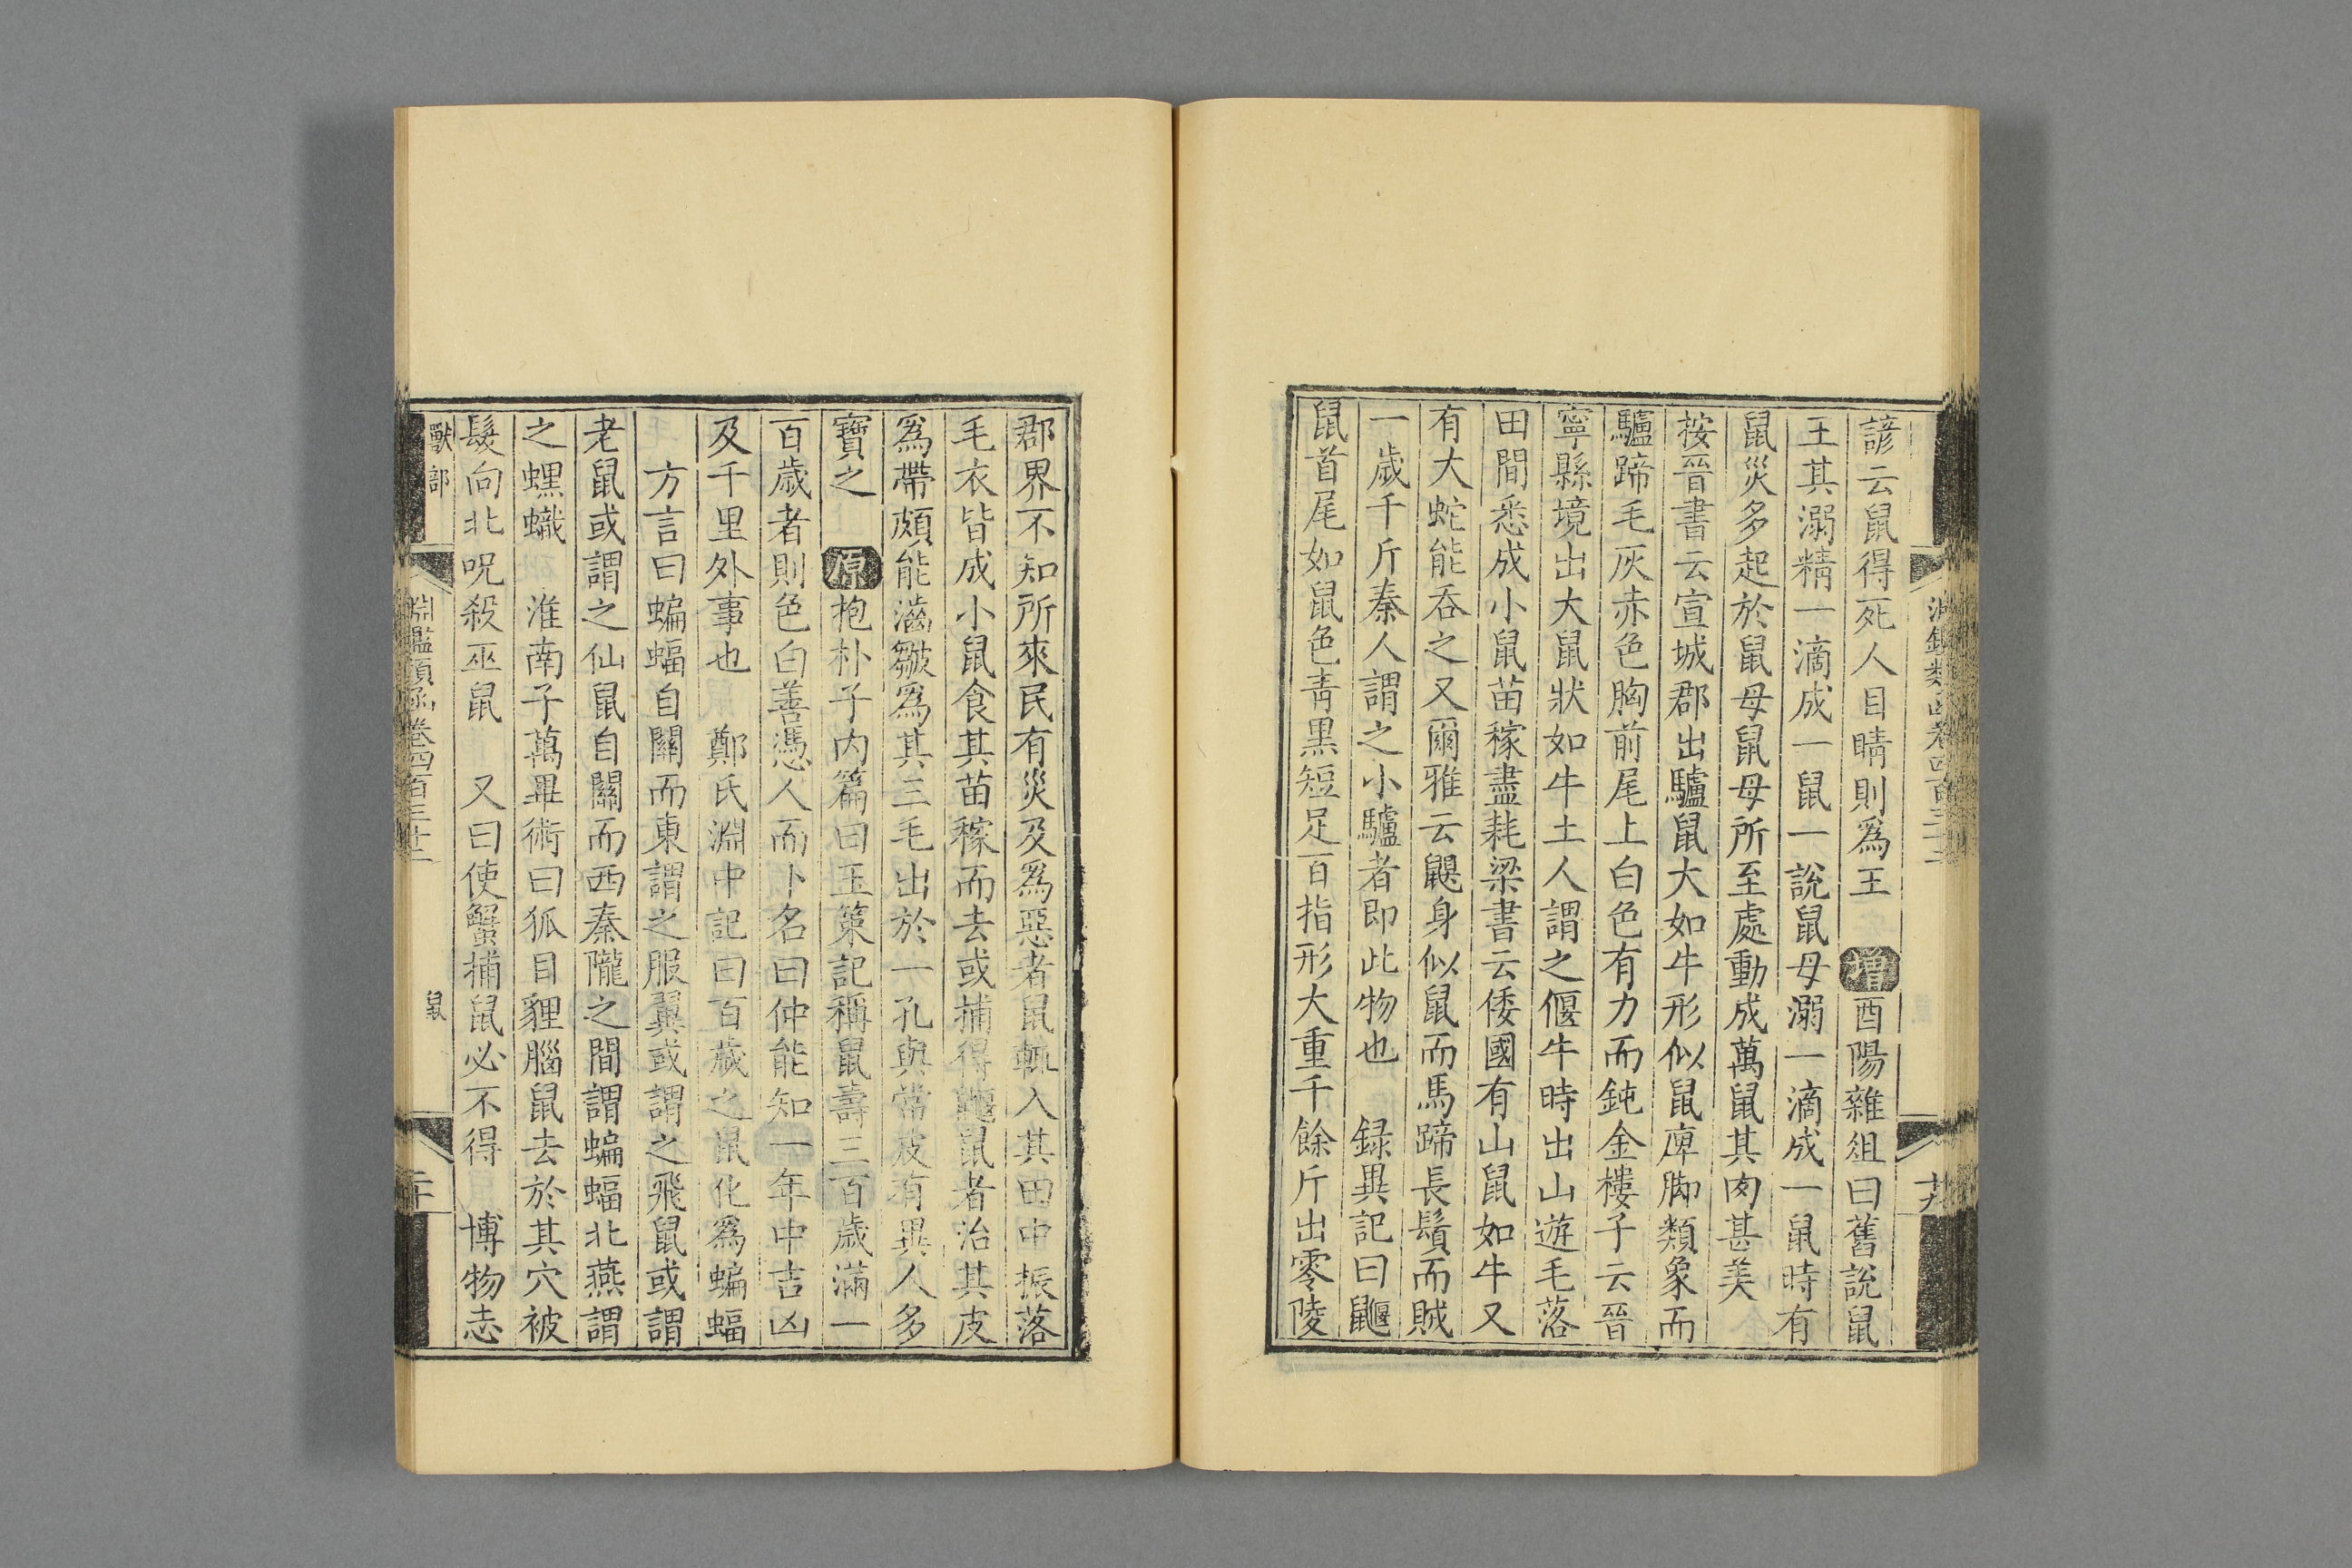 諺云鼠得死人目睛則爲王 增 酉陽雜俎曰舊說鼠
王其溺精一滴成一鼠一說鼠母溺一滴成一鼠時有
鼠災多起於鼠母鼠母所至處動成萬鼠其肉甚美
按晉書云宣城郡出驢鼠大如牛形似鼠庳脚類象而
驢蹄毛灰赤色胸前尾上白色有力而鈍金樓子云晉
寧縣境出大鼠狀如牛土人謂之偃牛時出山遊毛落
田間悉成小鼠苗稼盡耗梁書云倭國有山鼠如牛又
有大蛇能吞之又爾雅云鼳身似鼠而馬蹄長鬚而賊
一歲千斤秦人謂之小驢者即此物也 録異記曰鼴
鼠首尾如鼠色青黑短足百指形大重千餘斤出零陵
十九
郡界不知所來民有災及爲惡者鼠輒入其田中振落
毛衣皆成小鼠食其苗稼而去或捕得鼴鼠者治其皮
爲帶頗能澁皺爲其三毛出於一孔與常皮有異人多
寶之 原 抱朴子内篇曰玉策記稱鼠壽三百歲滿一
百歲者則色白善憑人而卜名曰仲能知一年中吉凶
及千里外事也 鄭氏淵中記曰百歲之鼠化爲蝙蝠
方言曰蝙蝠自關而東謂之服翼或謂之飛鼠或謂
老鼠或謂之仙鼠自關而西秦隴之間謂蝙蝠北燕謂
之蟔䘃 淮南子萬畢術曰狐目貍腦鼠去於其穴被
髮向北呪殺巫鼠 又曰使蟹捕鼠必不得 博物志
獸部 淵鑑類函卷四百三十二 鼠 二十